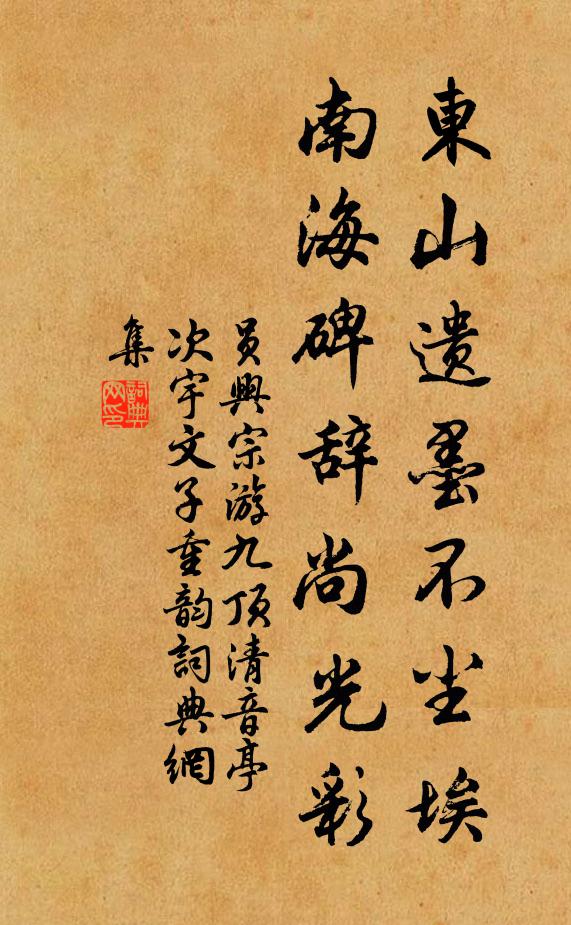 東山遗墨不尘埃
南海碑辞尚光彩
员興宗游九顶清音亭
次宇文子重韵詞典網
集
詞典網印